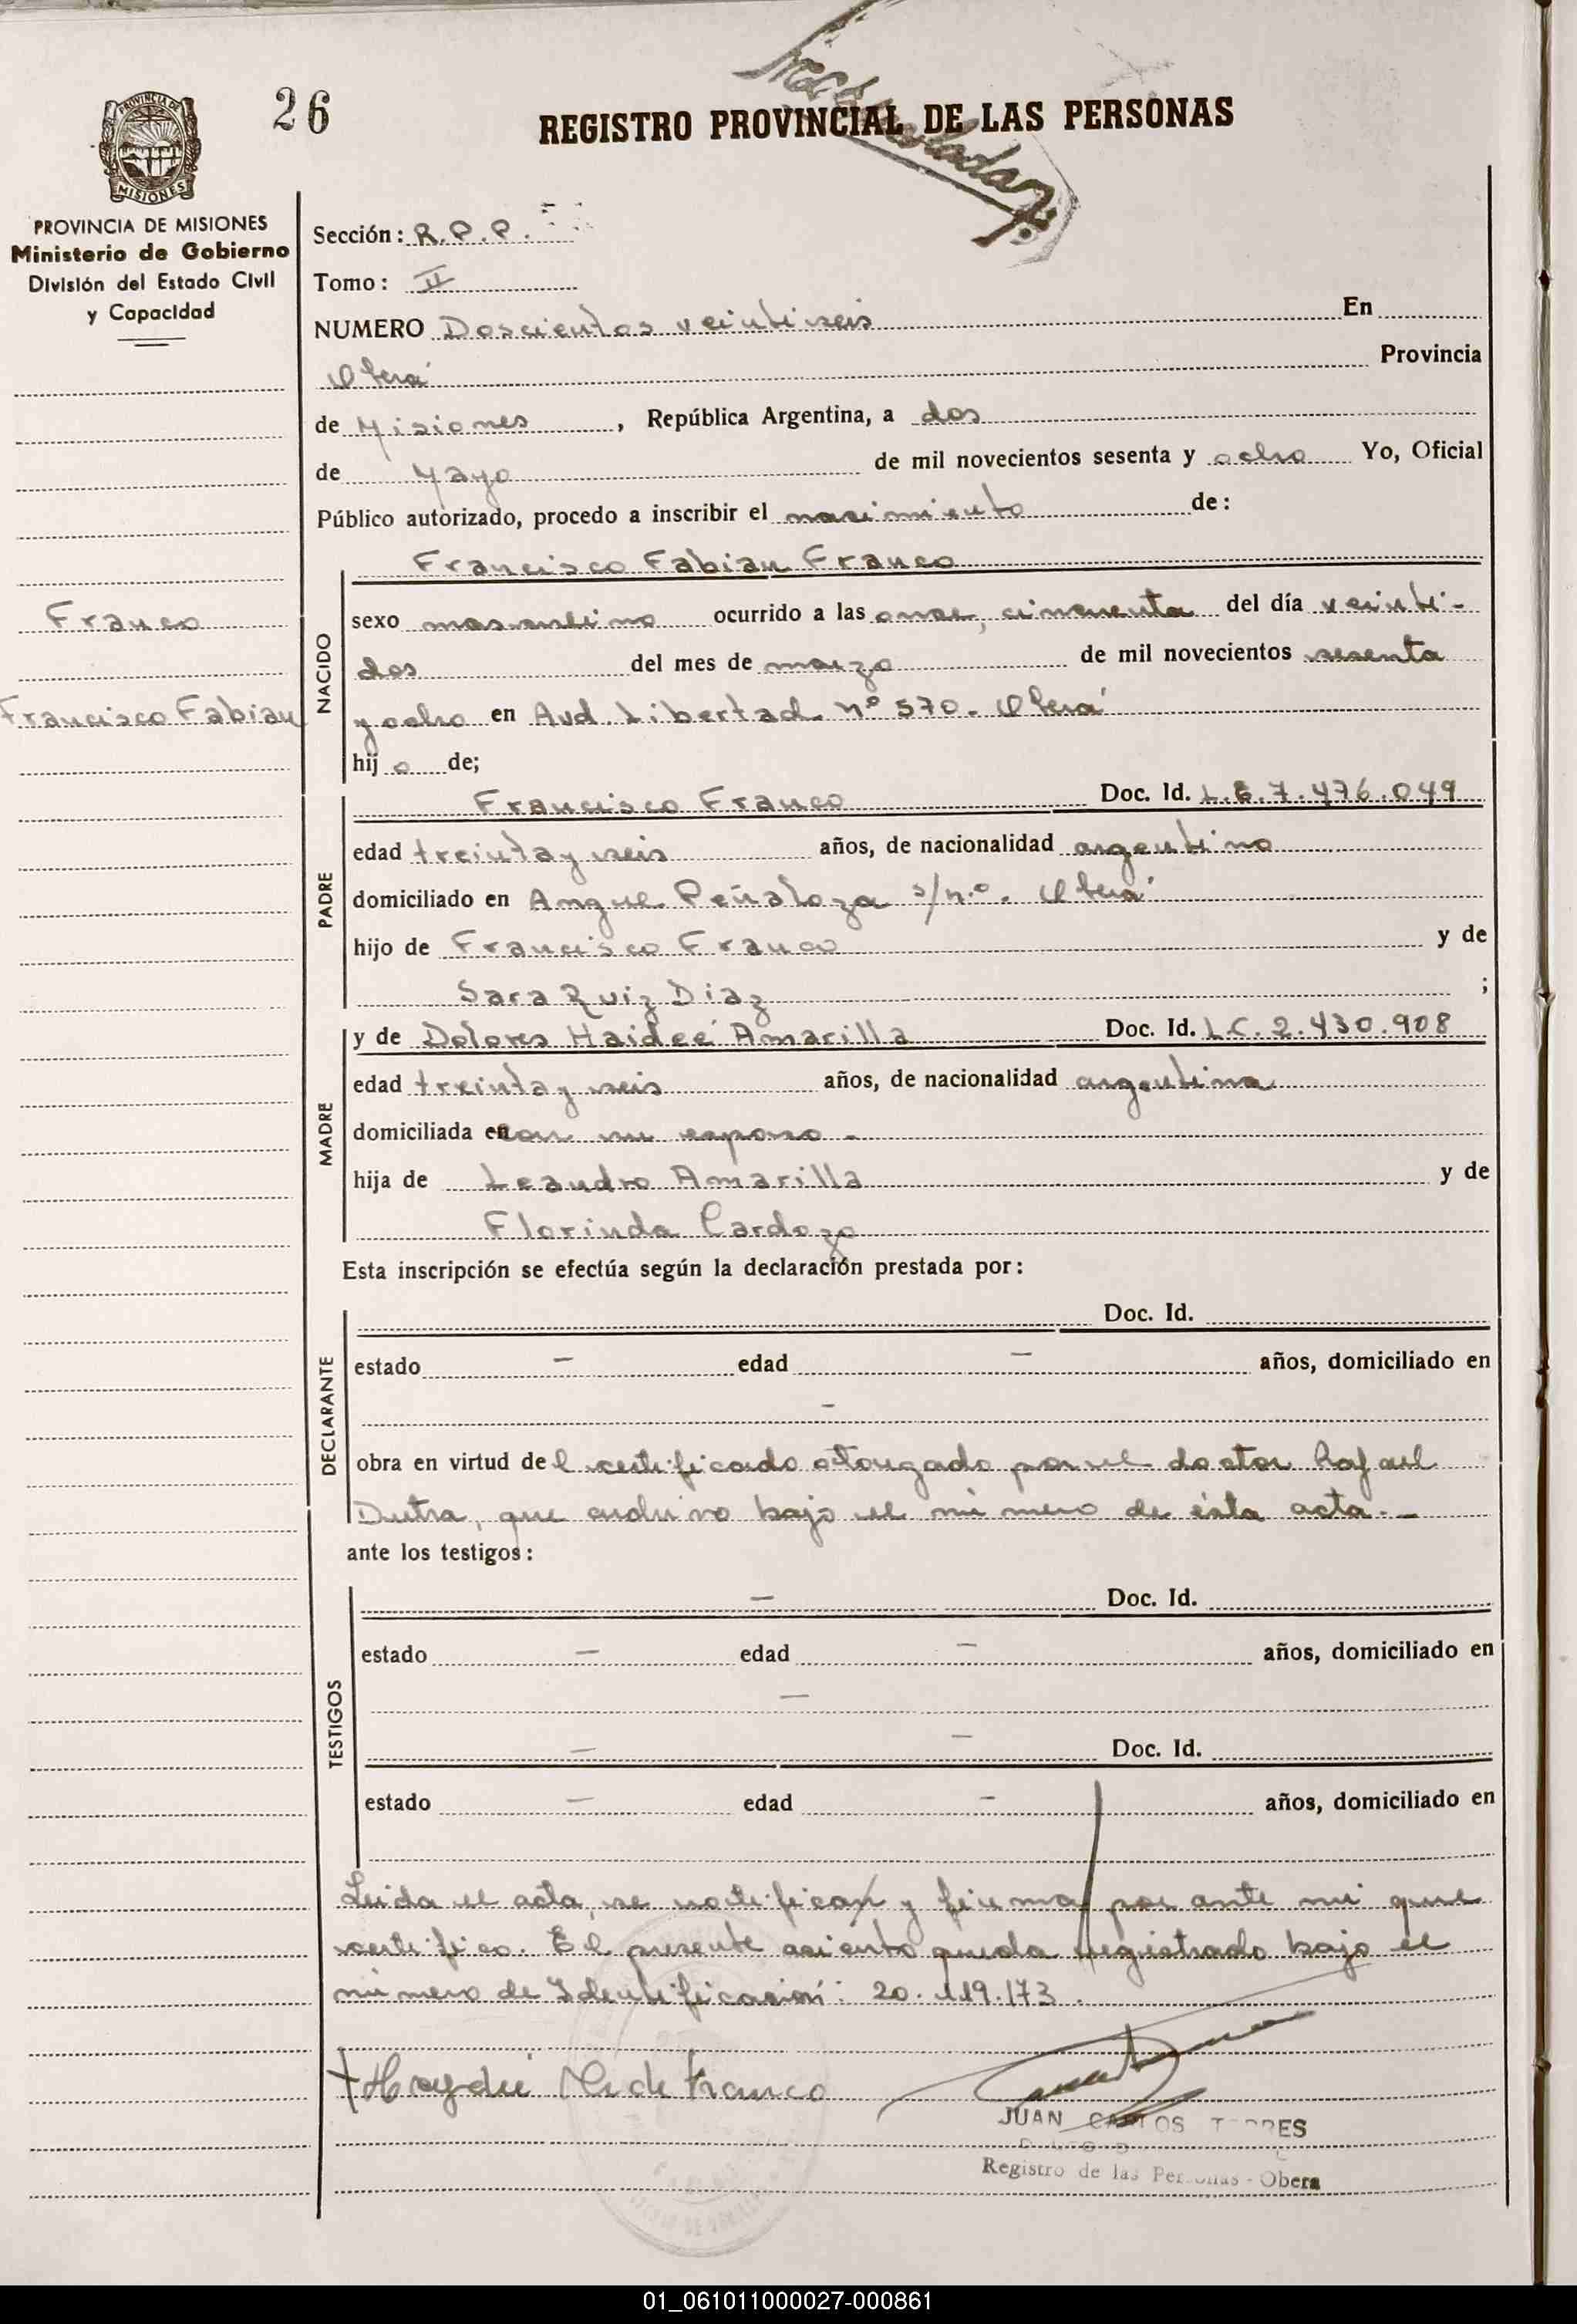 26
REGISTRO PROVINCIAL DE LAS PERSONAS
PROVINCIA DE
MISIONES
PROVINCIA DE MISIONES
Ministerio de Gobierno
División del Estado Civil
y Capacidad
Franco
Francisco Fabian
Sección: R.P.P.
Tomo: II
NUMERO Doscientos veintiseis En
Oberá Provincia
de Misiones, República Argentina, a dos
de Mayo de mil novecientos sesenta y ocho Yo, Oficial
Público autorizado, procedo a inscribir el nacimiento de:
Francisco Fabian Franco
NACIDO
sexo masculino ocurrido a las once, cincuenta del día veinti-
dos del mes de marzo de mil novecientos sesenta
y ocho en Avd. Libertad nº 570 - Oberá
hij o de;
PADRE
Francisco Franco Doc. Id. L.E. 7.476.049
edad treinta y seis años, de nacionalidad argentino
domiciliado en Angel Peñaloza s/n.º. Oberá
hijo de Francisco Franco y de
Sara Ruiz Diaz ;
MADRE
y de Dolores Haideé Amarilla Doc. Id. L.C. 2.430.908
edad treinta y seis años, de nacionalidad argentina
domiciliada en con su esposo -
hija de Leandro Amarilla y de
Florinda Cardozo
Esta inscripción se efectúa según la declaración prestada por:
DECLARANTE
Doc. Id.
estado - edad - años, domiciliado en
-
obra en virtud del certificado otorgado por el doctor Rafael
Dutra, que archivo bajo el número de ésta acta.-
ante los testigos:
TESTIGOS
- Doc. Id.
estado - edad - años, domiciliado en
-
- - Doc. Id.
estado - edad - años, domiciliado en
Leida el acta, se notifican y firma por ante mi que
certifico. El presente asiento queda registrado bajo el
número de Identificación: 20.119.173.
Haydeé de Franco
JUAN CARLOS TORRES
Registro de las Personas - Oberá
01_061011000027-000861